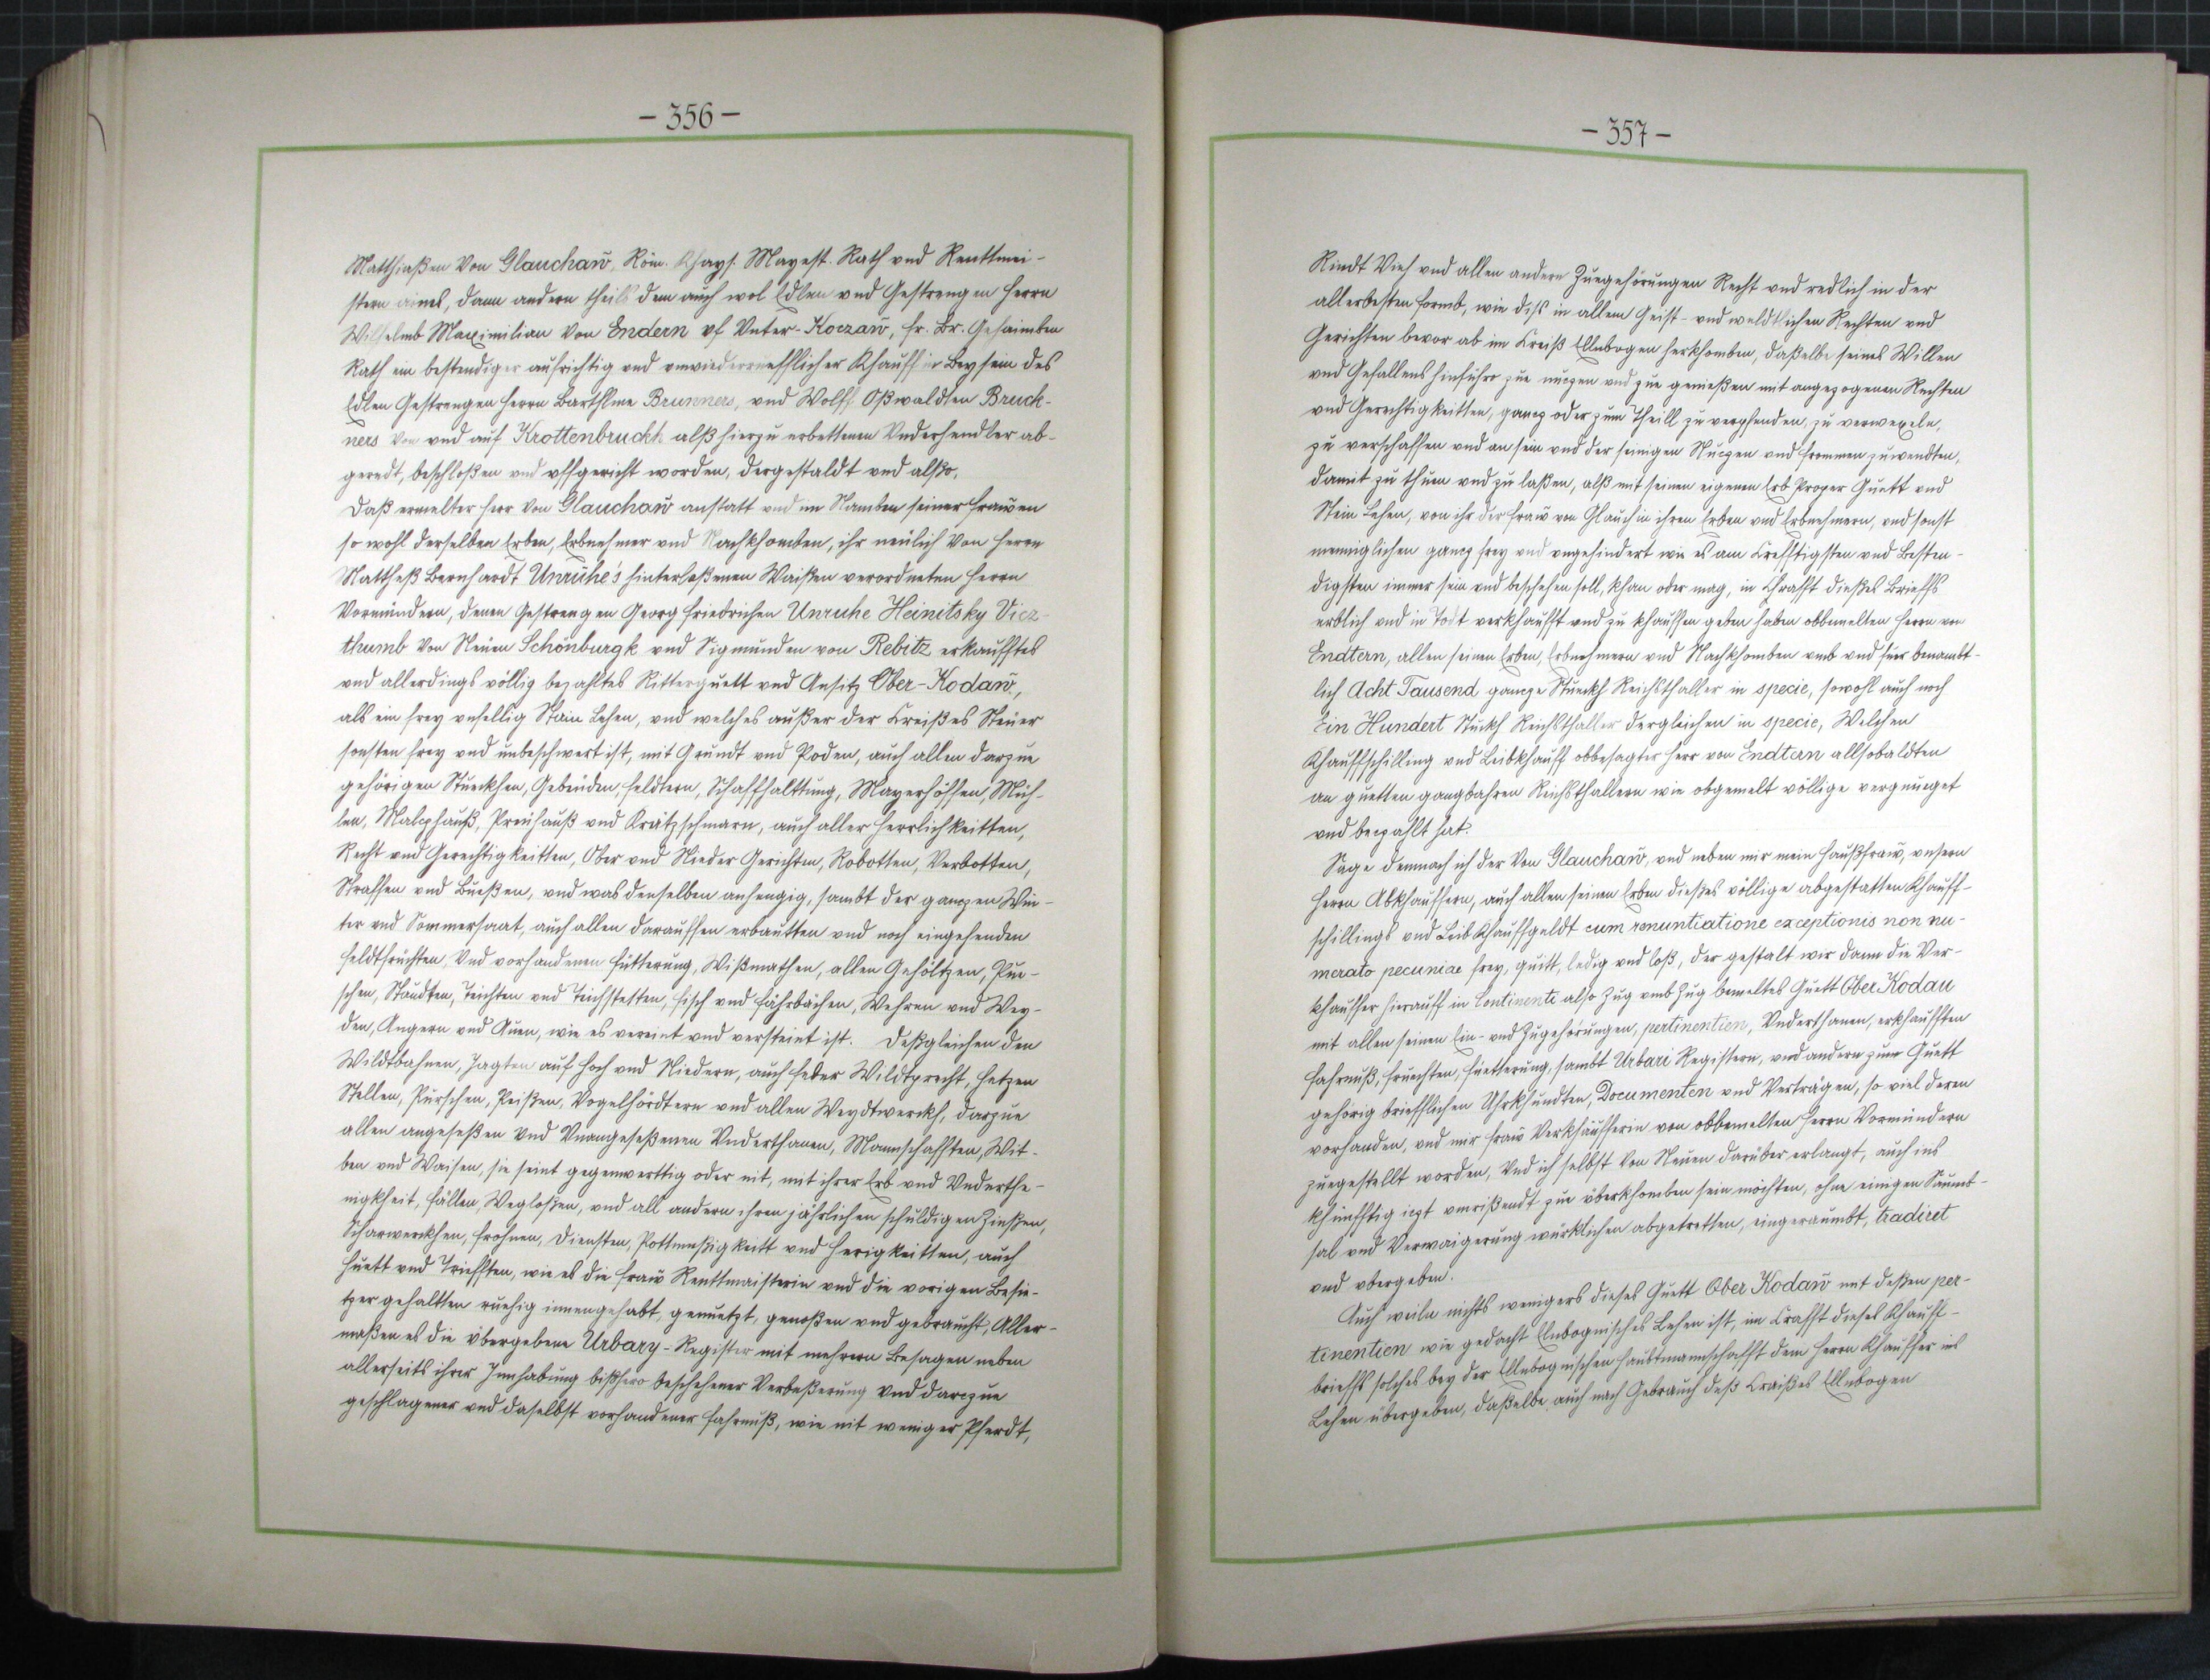 - 356 -
Matthiaßen Von Glauchaw̄, Röm. Khays. Mayest. Rath vnd Renttmei-
stern aines, dann andern theils dem auch wol Edlen vnd Gestrengen Herrn
Wilhelmb Maximilian Von Endern vf Vnter-Koczaw̄, fr. Br. Gehaimben
Rath ein bestendiger aufrichtig vnd vnwiederruefflicher Khauff in Beysein des
Edlen Gestrengen Herrn Barthlme Brunners, vnd Wolff Oßwaldten Bruck-
ners von vnd auf Krottenbruckh alß hierzu erbettenen Vnderhendler ab-
geredt, beschloßen vnd vffgericht worden, dergestaldt vnd alßo,
Daß ermelter Herr Von Glauchaw̄ anstatt vnd im Namben seiner Frawen
so wohl derselben Erben, Erbnehmer vnd Nachkhomben, ihr neulich Von Herrn
Mattheß Bernhardt Unruhe's hinterlaßenen Waißen verordneten Herrn
Vormündern, denen Gestrengen Georg Friedrichen Unruhe Heinitsky Vicz-
thumb Von Neuen Schönburgk vnd Sigmunden von Rebitz erkaufftes
vnd allerdings völlig bezahltes Ritterguett vnd Ansitz Ober-Kodaw̄,
als ein frey vnfellig Stain Lehen, vnd welches außer der Creißes Steuer
sonsten frey vnd unbeschwert ist, mit Grundt vnd Poden, auch allen darzue
gehörigen Stuckhen, Gebeuden, Feldtern, Schaffhalttung, Mayerhöffen, Müh-
len, Malczhauß, Preuhauß vnd Krätzschmarn, auch aller Herrlichkeitten,
Recht vnd Gerechtigkeitten, Ober vnd Nieder Gerichten, Robotten, Verbotten,
Straffen vnd Bueßen, vnd was denselben anhengig, sambt der ganczen Win-
ter vnd Sommersaat, auch allen darauffen erbautten vnd noch eingehenden
Feldtfrüchten, Vnd vorhandenen Fütterung, Wißmathen, allen Gehöltzen, Püe-
schen, Staudten, Teichten vnd Teichstetten, Fisch vnd Fahrbächen, Wehren vnd Wey-
den, Angern vnd Auen, wie es vereint vnd versteint ist. Deßgleichen den
Wildtbahnen, Jagten auf Hoch vnd Niedern, auch Feder Wildtprecht, Hetzen
Stellen, Pürschen, Peißen, Vogelhördtern vnd allen Weydtwerckh, darzue
allen angeseßen vnd Vnangeseßenen Vnderthanen, Mannschafften, Wit-
ben vnd Waisen, sie seint gegenwerttig oder nit, mit ihrer Erb vnd Vnderthe-
nigkheit, Fällen Wegloßen, vnd all andern ihren jährlichen schuldigen Zinßen,
Scharwerckhen, Frohnen, Diensten, Pottmeßigkeitt vnd Herigkeitten, auch
Huett vnd Triefften, wie es die Fraw Renttmaisterin vnd die vorigen Besie-
tzer gehaltten ruehig innengehabt, genuetzt, genoßen vnd gebraucht, Aller-
maßen es die übergebene Urbary-Register mit mehrern Besagen neben
allerseits ihrer Innhabung bißhero beschehener Verbeßerung vnd darczue
geschlagener vnd daselbst vorhandener Fahrnuß, wie nit weniger Pferdt,
- 357 -
Rindt Vieh vnd allen andern Zuegehörungen Recht vnd redlich in der
allerbesten Formb, wie diß in allem Geist- vnd weldtlichen Rechten vnd
Gerichten bevor ab im Creiß Ellnbogen herkhomben, daßelbe seines Willen
vnd Gefallens hinführo zue nuczen vnd zue genießen mit angezogenen Rechten
vnd Gerechtigkeitten, gancz oder zum Theill zu verpfenden, zu verwexeln,
zu verschaffen vnd an sein vnd der seinigen Nuczen vnd Frommen zuwendten,
damit zu thuen vnd zu laßen, alß mit seinen eigenen Erb Proper Guett vnd
Stein Lehen, von ihr der Fraw von Glauch in ihren Erben vnd Erbnehmern, vnd sonst
menniglichen gancz frey vnd vngehindert wie es am Crefftigsten vnd Besten-
digsten immer sein vnd beschehen soll, khan oder mag, in Chrafft dießes Brieffs
erblich vnd in Todt verkhaufft vnd zu khauffen geben haben obbemelten Herrn von
Endtern, allen seinen Erben, Erbnehmern vnd Nachkhomben vmb vnd fuer benambt-
lich Acht Tausend gancze Stueckh Reichsthaller in specie, sowohl auch noch
Ein Hundert Stuckh Reichsthaller dergleichen in specie, Welchen
Khauffschilling vnd Leibkhauff obbesagter Herr von Endtern allsobaldten
an guetten gangbahren Reichsthallern wie obgemelt völlige vergnueget
vnd beczahlt hat.
Sage demnach ich der Von Glauchaw̄, vnd neben mir mein Haußfraw, vnsern
Herrn Abkhauffern, auch allen seinen Erben dießes völlige abgestatten Khauff-
schillings vnd Leib Khauffgeldt cum renuntiatione exceptionis non nu-
merato pecuniae frey, quitt, ledig vnd loß, der gestalt wir dann die Ver-
khauffer hierauff in Continenti also Zug vmb Zug bemeltes Guett Ober Kodau
mit allen seinen Ein- vnd Zugehörungen, pertinentien, Vnderthanen, erkhaufften
Fahrnuß, Fruechten, Fuetterung, sambt Urbari Registern, vnd andern zum Guett
gehörig brieflichen Uhrkhundten, Documenten vnd Verträgen, so viel deren
vorhanden, vnd mir Fraw Verkhäufferin von obbemelten Herrn Vormündern
zuegestellt worden, Vnd ich selbst Von Neuen darüber erlangt, auch ins
khünfftig iezt vnwißendt zue überkhomben sein möchten, ohne einigen Saumb-
sal vnd Verwaigerung würklichen abgetretten, eingeraumbt, tradiret
vnd vbergeben.
Auch weiln nichts wenigers dieses Guett Ober Kodaw̄ mit deßen per-
tinentien wie gedacht Elnbognisches Lehen ist, im Crafft dieses Khauff-
brieffs solches bey der Ellnbognischen Haubtmannschafft dem Herrn Khauffer ins
Lehen übergeben, daßelbe auch nach Gebrauch deß Craißes Ellnbogen